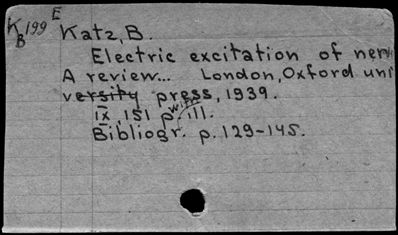 K 199 E
B
Katz, B.
Electric excitation of nerv
A review... London, Oxford uni
versity press, 1939.
ix, 151 p. with ill.
Bibliogr. p. 129-145.